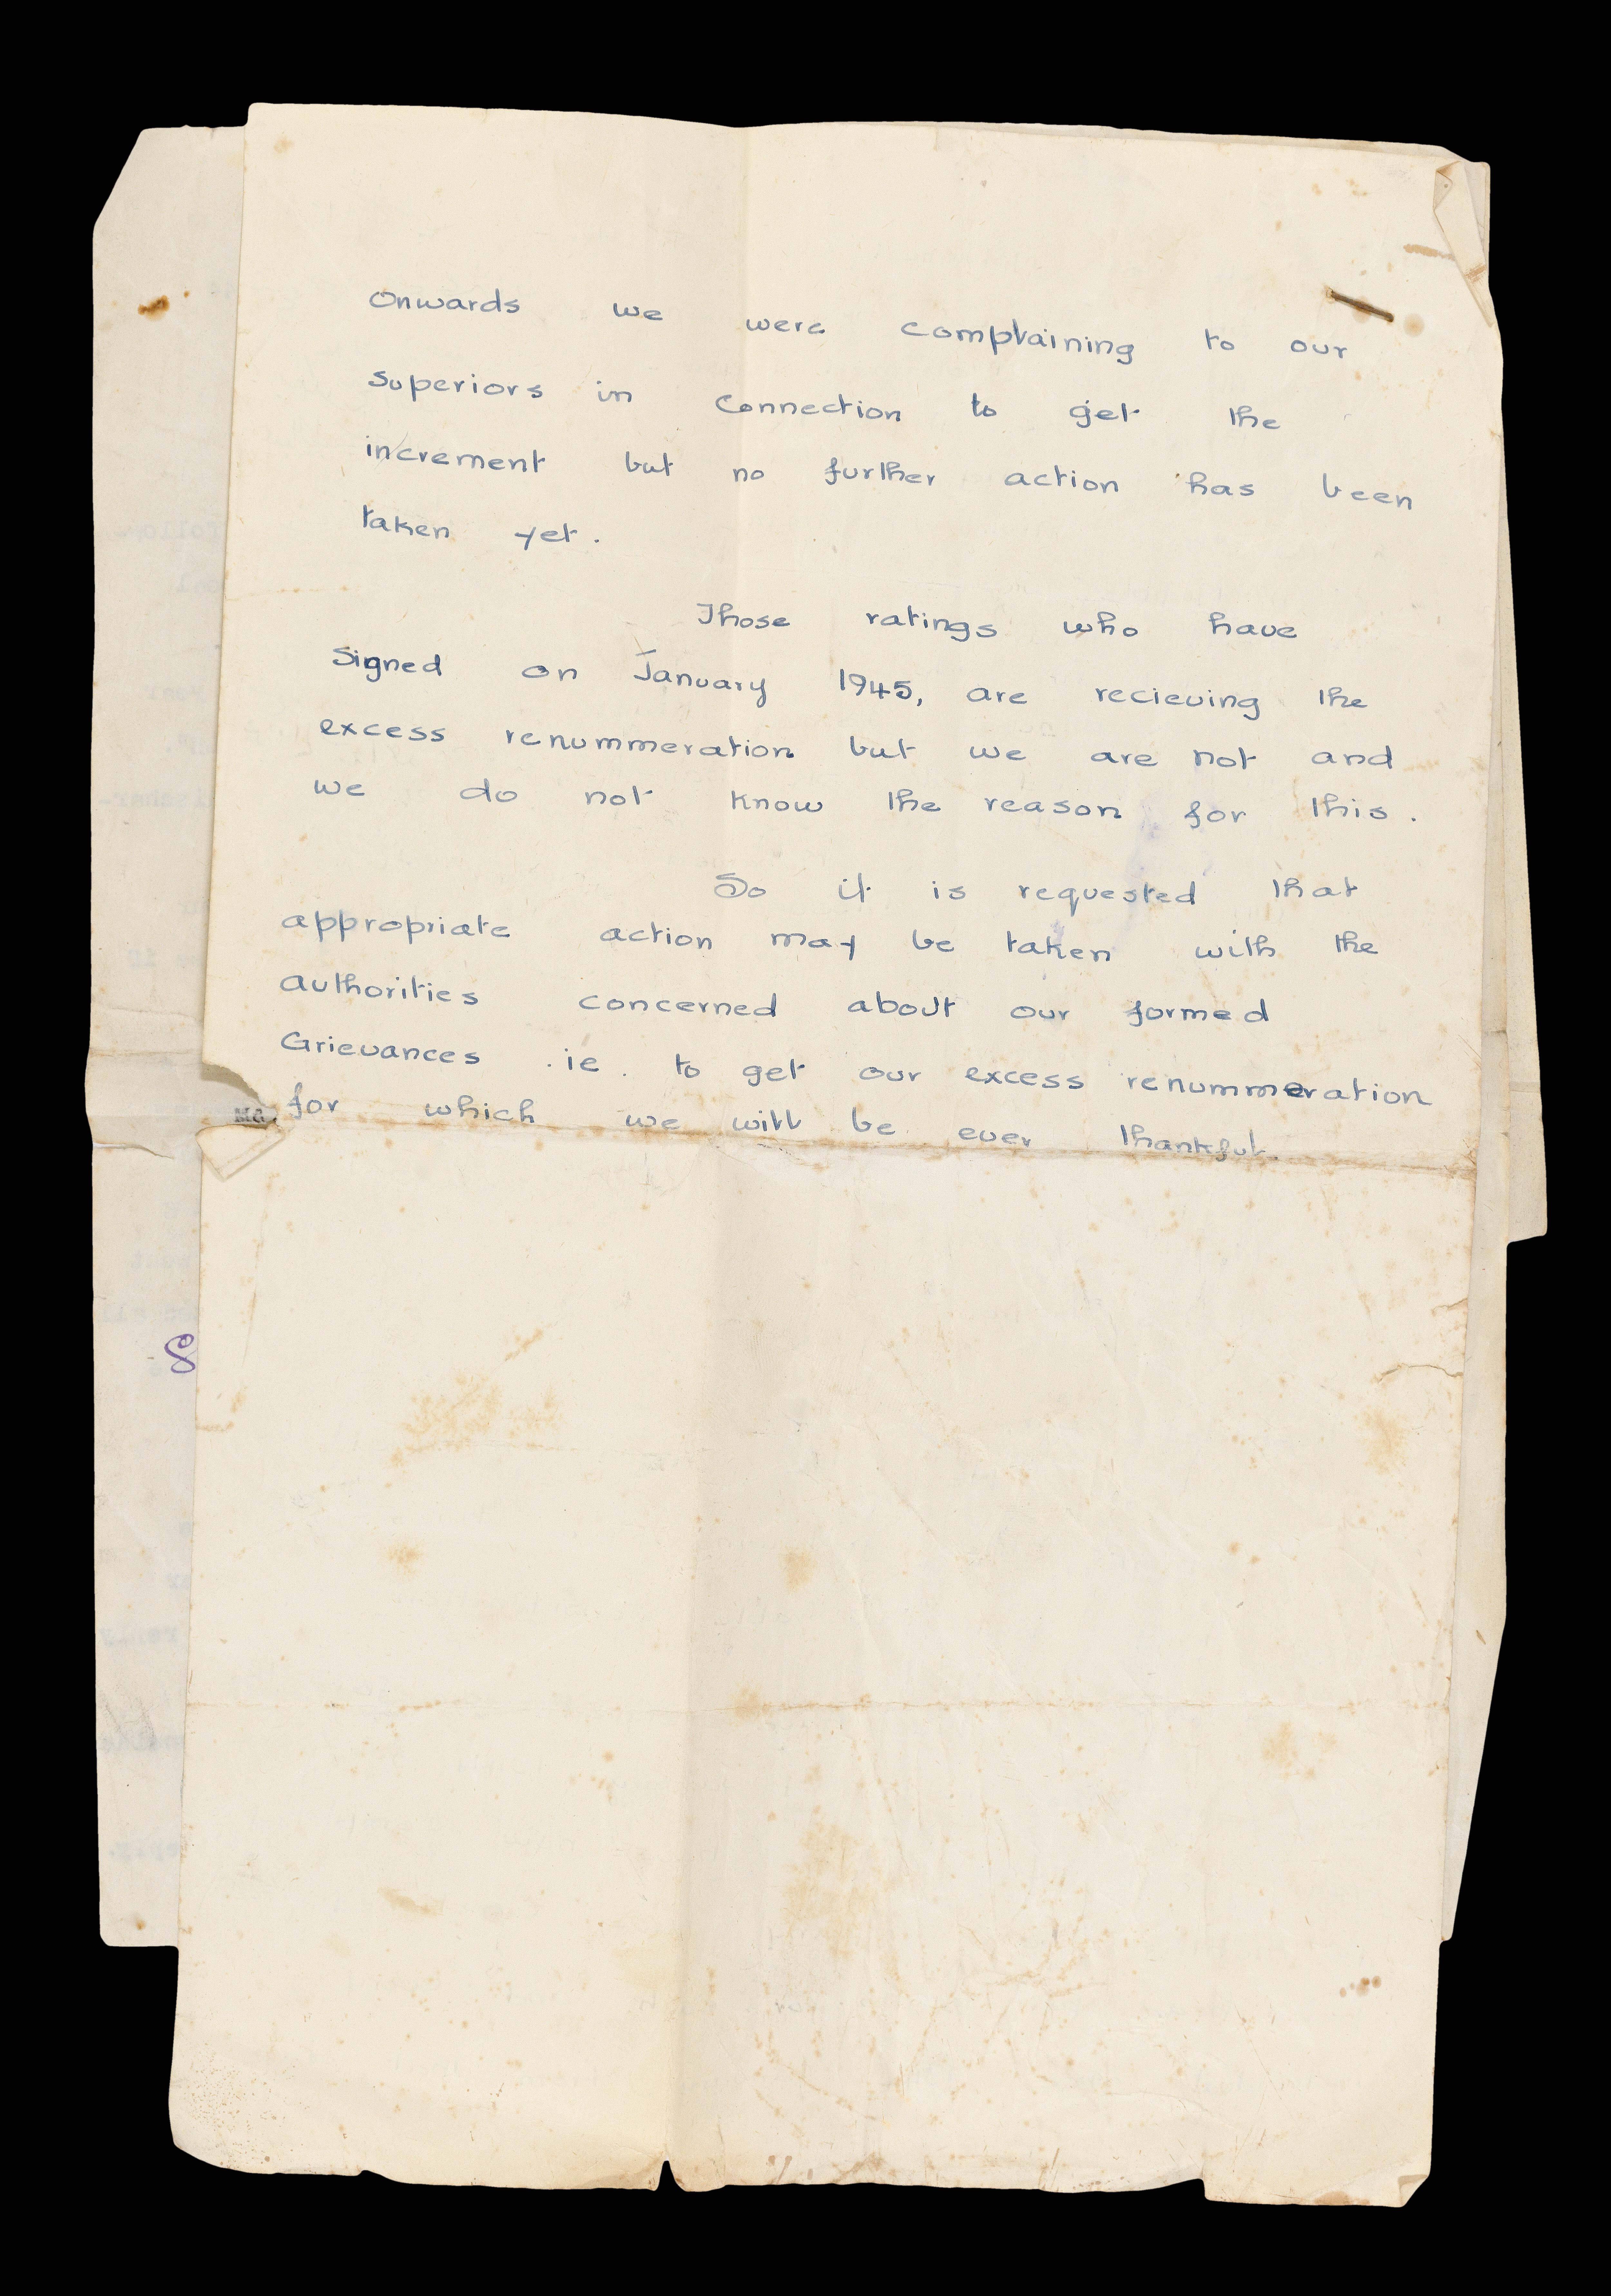 Onwards we were complaining to our
superiors in connection to get the
increment but no further action has been
taken yet.
Those ratings who have
Signed on January 1945, are recieving the
excess renummeration but we are not and
we do not know the reason for this.
So it is requested that
appropriate action may be taken with the
authorities concerned about our formed
Grievances .ie. to get our excess renummeration
for which we will be ever thankful.